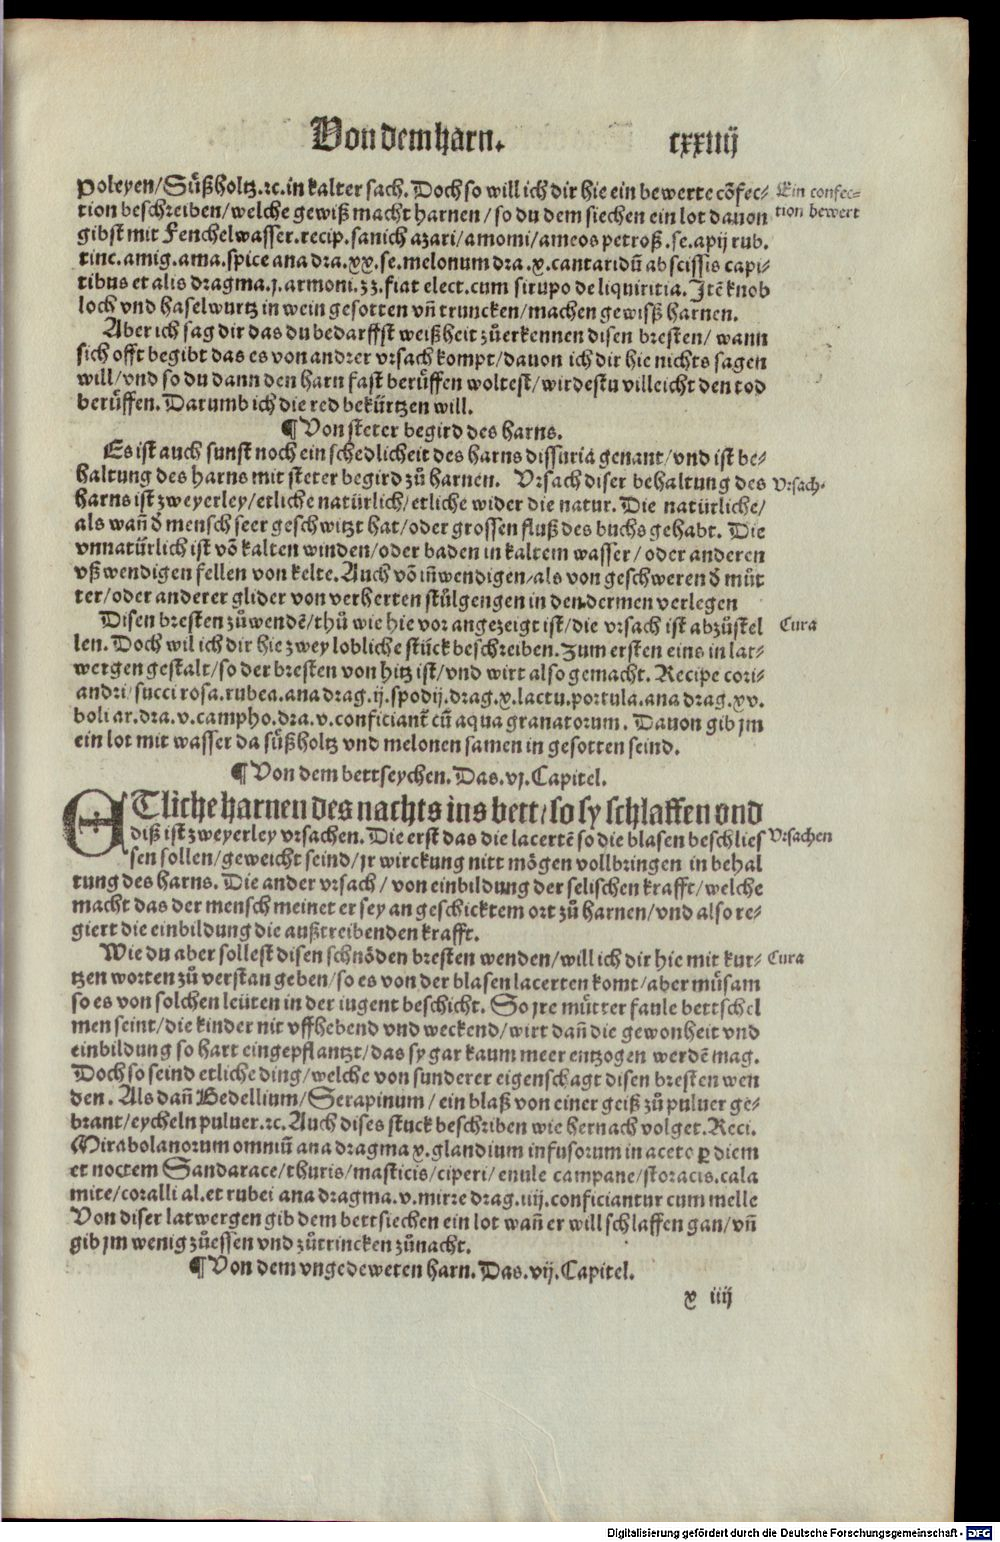 Von dem harn. cxxiiij
poleyen/Süßholtz.ꝛc.in kalter sach. Doch so will ich dir hie ein bewerte cōfec-
Ein confec=
tion beschreiben/welche gewiß macht harnen/so du dem siechen ein lot dauon
tion bewert
gibst mit Fenchelwasser.recip.sanich azari/amomi/ameos petroß.se.apij rub.
tinc.amig.ama.spice ana dra.xx.se.melonum dra.x.cantaridū abscissis capi-
tibus et alis dragma.j.armoni.ʒʒ.fiat elect.cum sirupo de liquiritia. Itē knob
loch vnd haselwurtz in wein gesotten vn̄ truncken/machen gewißß harnen.
Aber ich sag dir das du bedarffst weißheit zůerkennen disen bresten/ wann
sich offt begibt das es von andrer vrsach kompt/dauon ich dir hie nichts sagen
will/vnd so du dann den harn fast berůffen woltest/wirdestu villeicht den tod
berůffen. Darumb ich die red bekürtzen will.
¶ Von steter begird des harns.
Es ist auch sunst noch ein schedlicheit des harns dissuria genant/vnd ist be-
haltung des harns mit steter begird zů harnen. Vrsach diser behaltung des
Vrsach.
harns ist zweyerley/etliche natürlich/etliche wider die natur. Die natürliche/
als wañ d̄ mensch seer geschwitzt hat/oder grossen fluß des buchs gehabt. Die
vnnatürlich ist vō kalten winden/oder baden in kaltem wasser/oder anderen
vßwendigen fellen von kelte. Auch vō iñwendigen/als von geschweren d̄ můt
ter/oder anderer glider von verherten stůlgengen in den dermen verlegen
Disen bresten zůwendē/thů wie hie vor angezeigt ist/die vrsach ist abzůstel
Cura
len. Doch wil ich dir hie zwey lobliche stück beschreiben. Zum ersten eins in lat-
wergen gestalt/so der bresten von hitz ist/vnd wirt also gemacht. Recipe cori-
andri/succi rosa.rubea.ana drag.ij.spodij.drag.x.lactu.portula.ana drag.xv.
boli ar.dra.v.campho.dra.v.conficiant̄ cū aqua granatorum. Dauon gib jm
ein lot mit wasser da süßholtz vnd melonen samen in gesotten seind.
¶ Von dem bettseychen. Das.vj.Capitel.
ETliche harnen des nachts ins bett/so sy schlaffen vnd
diß ist zweyerley vrsachen. Die erst das die lacertē so die blasen beschlies
Vrsachen
sen sollen/geweicht seind/jr wirckung nitt mögen vollbringen in behal
tung des harns. Die ander vrsach/von einbildung der selischen krafft/welche
macht das der mensch meinet er sey an geschicktem ort zů harnen/vnd also re-
giert die einbildung die außtreibenden krafft.
Wie du aber sollest disen schnöden bresten wenden/will ich dir hie mit kur-
Cura
tzen worten zů verstan geben/so es von der blasen lacerten komt/aber můsam
so es von solchen leüten in der iugent beschicht. So jre můtter faule bettschel
men seint/die kinder nit vffhebend vnd weckend/wirt dañ die gewonheit vnd
einbildung so hart eingepflantzt/das sy gar kaum meer entzogen werdē mag.
Doch so seind etliche ding/welche von sunderer eigenschagt disen bresten wen
den. Als dañ Bedellium/Serapinum/ein blaß von einer geiß zů puluer ge-
brant/eycheln puluer.ꝛc. Auch dises stuck beschriben wie hernach volget. Reci.
Mirabolanorum omniū ana dragma x.glandium infusorum in aceto ꝑ diem
et noctem Sandarace/thuris/masticis/ciperi/enule campane/storacis.cala
mite/coralli al.et rubei ana dragma.v.mirre drag.iiij.conficiantur cum melle
Von diser latwergen gib dem bettsiechen ein lot wañ er will schlaffen gan/vn̄
gib jm wenig zůessen vnd zůtrincken zůnacht.
¶ Von dem vngedeweten harn. Das.vij.Capitel.
x iiij
Digitalisierung gefördert durch die Deutsche Forschungsgemeinschaft - DFG